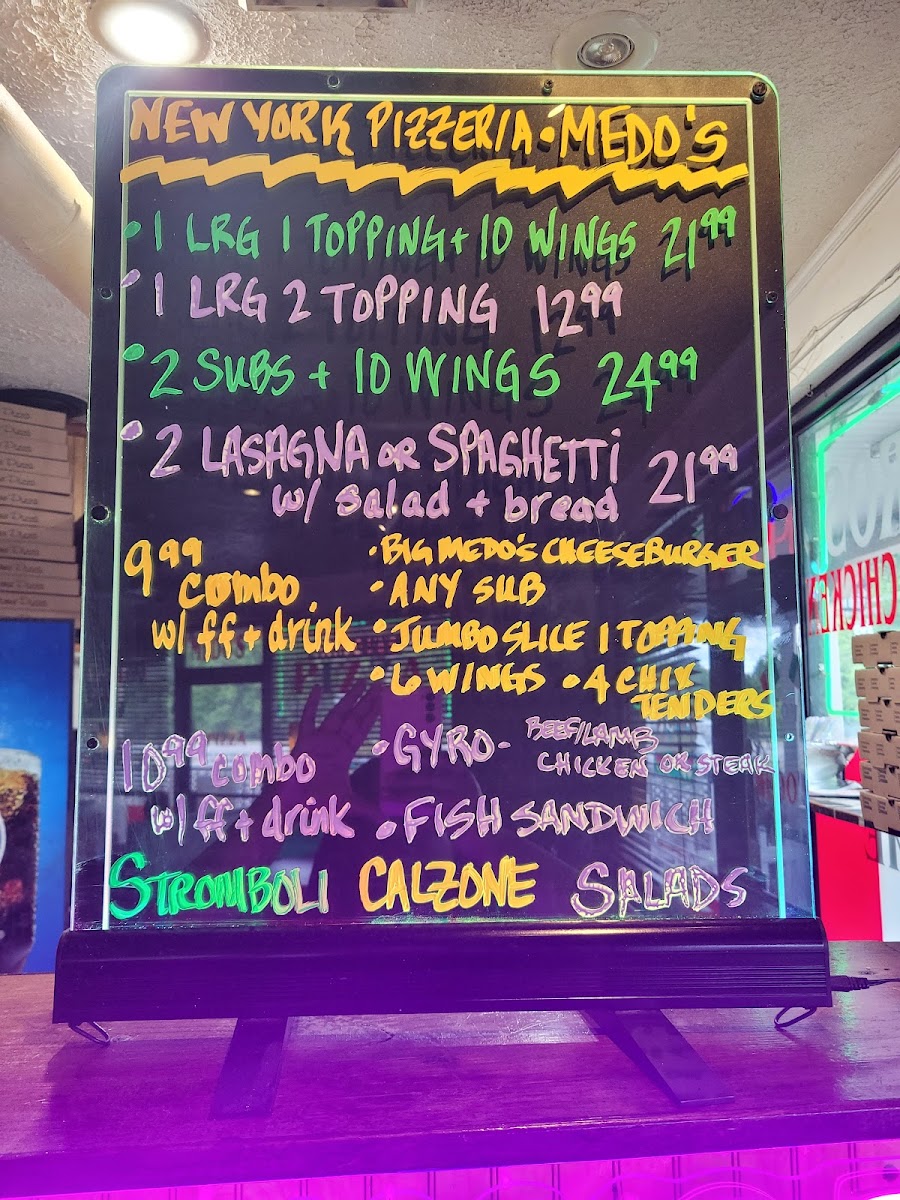 NEW YORK PIZZERIA • MEDO'S
• 1 LRG 1 TOPPING + 10 WINGS 21.99
• 1 LRG 2 TOPPING 12.99
• 2 SUBS + 10 WINGS 24.99
• 2 LASAGNA OR SPAGHETTI 21.99
w/ salad + bread
9.99 combo w/ ff + drink
• BIG MEDO'S CHEESEBURGER
• ANY SUB
• JUMBO SLICE 1 TOPPING
• 6 WINGS • 4 CHIK TENDERS
10.99 combo w/ ff + drink
• GYRO - BEEF/LAMB CHICKEN OR STEAK
• FISH SANDWICH
STROMBOLI CALZONE SALADS
CHICKEN